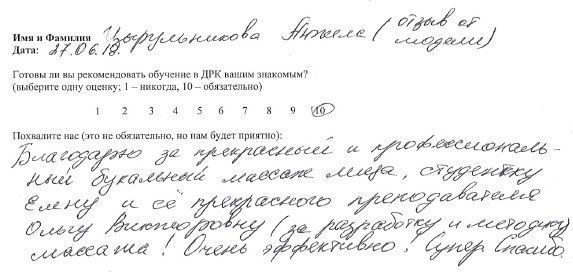 Имя и Фамилия Цырульникова Анжела (отзыв от
Дата: 27.06.18. модели)
Готовы ли вы рекомендовать обучение в ДРК вашим знакомым?
(выберите одну оценку; 1 – никогда, 10 – обязательно)
1 2 3 4 5 6 7 8 9 10
Похвалите нас (это не обязательно, но нам будет приятно):
Благодарю за прекрасный и профессиональ-
ный букальный массаж лица, студентку
Елену и её прекрасного преподавателя
Ольгу Викторовну (за разработку и методику)
массажа! Очень эффективно! Супер. Спасибо.